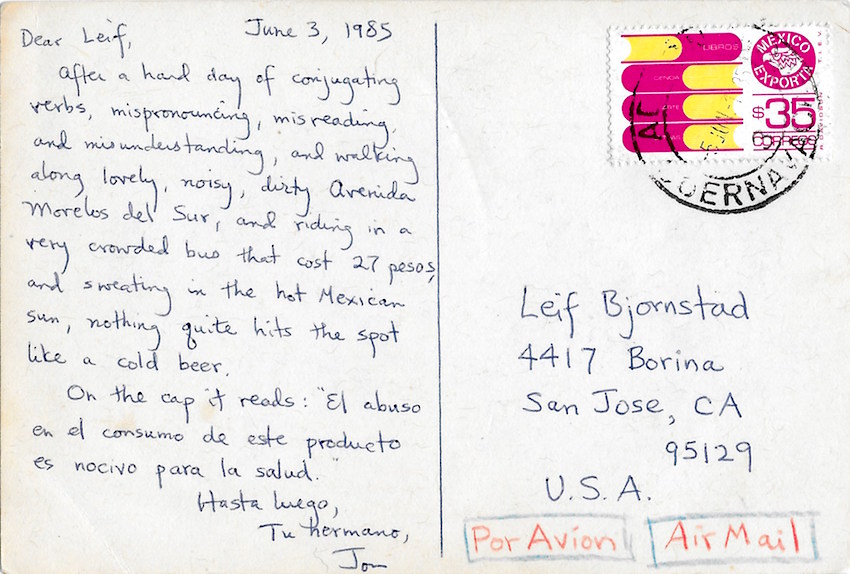 Dear Leif,
June 3, 1985
After a hard day of conjugating
verbs, mispronouncing, misreading,
and misunderstanding, and walking
along lovely, noisy, dirty Avenida
Morelos del Sur, and riding in a
very crowded bus that cost 27 pesos,
and sweating in the hot Mexican
sun, nothing quite hits the spot
like a cold beer.
On the cap it reads: "El abuso
en el consumo de este producto
es nocivo para la salud."
Hasta luego,
Tu hermano,
Jon
LIBROS
MEXICO
EXPORTA
$35
CORREOS
Leif Bjornstad
4417 Borina
San Jose, CA
95129
U.S.A.
Por Avion
Air Mail